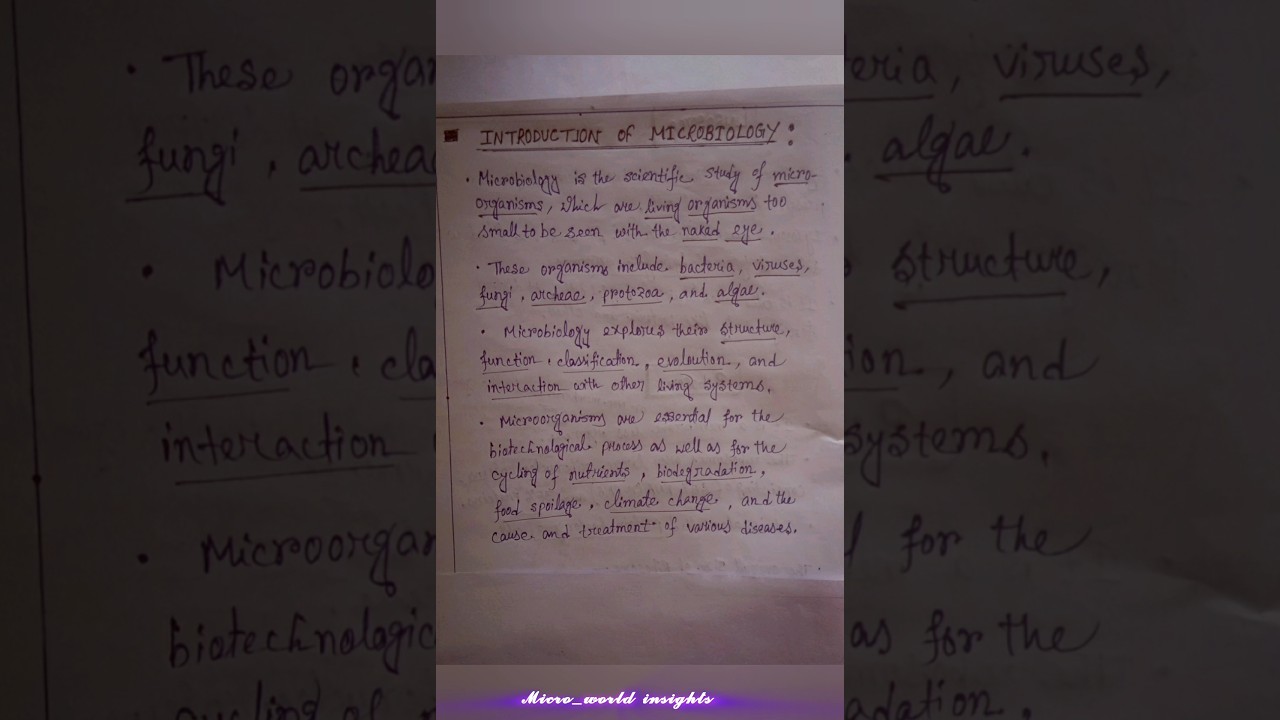 INTRODUCTION OF MICROBIOLOGY :
• Microbiology is the scientific study of micro-
organisms, which are living organisms too
small to be seen with the naked eye.
• These organisms include bacteria, viruses,
fungi, archeae, protozoa, and algae.
• Microbiology explores their structure,
function, classification, evolution, and
interaction with other living systems.
• Microorganisms are essential for the
biotechnological process as well as for the
cycling of nutrients, biodegradation,
food spoilage, climate change, and the
cause and treatment of various diseases.
Micro_world insights